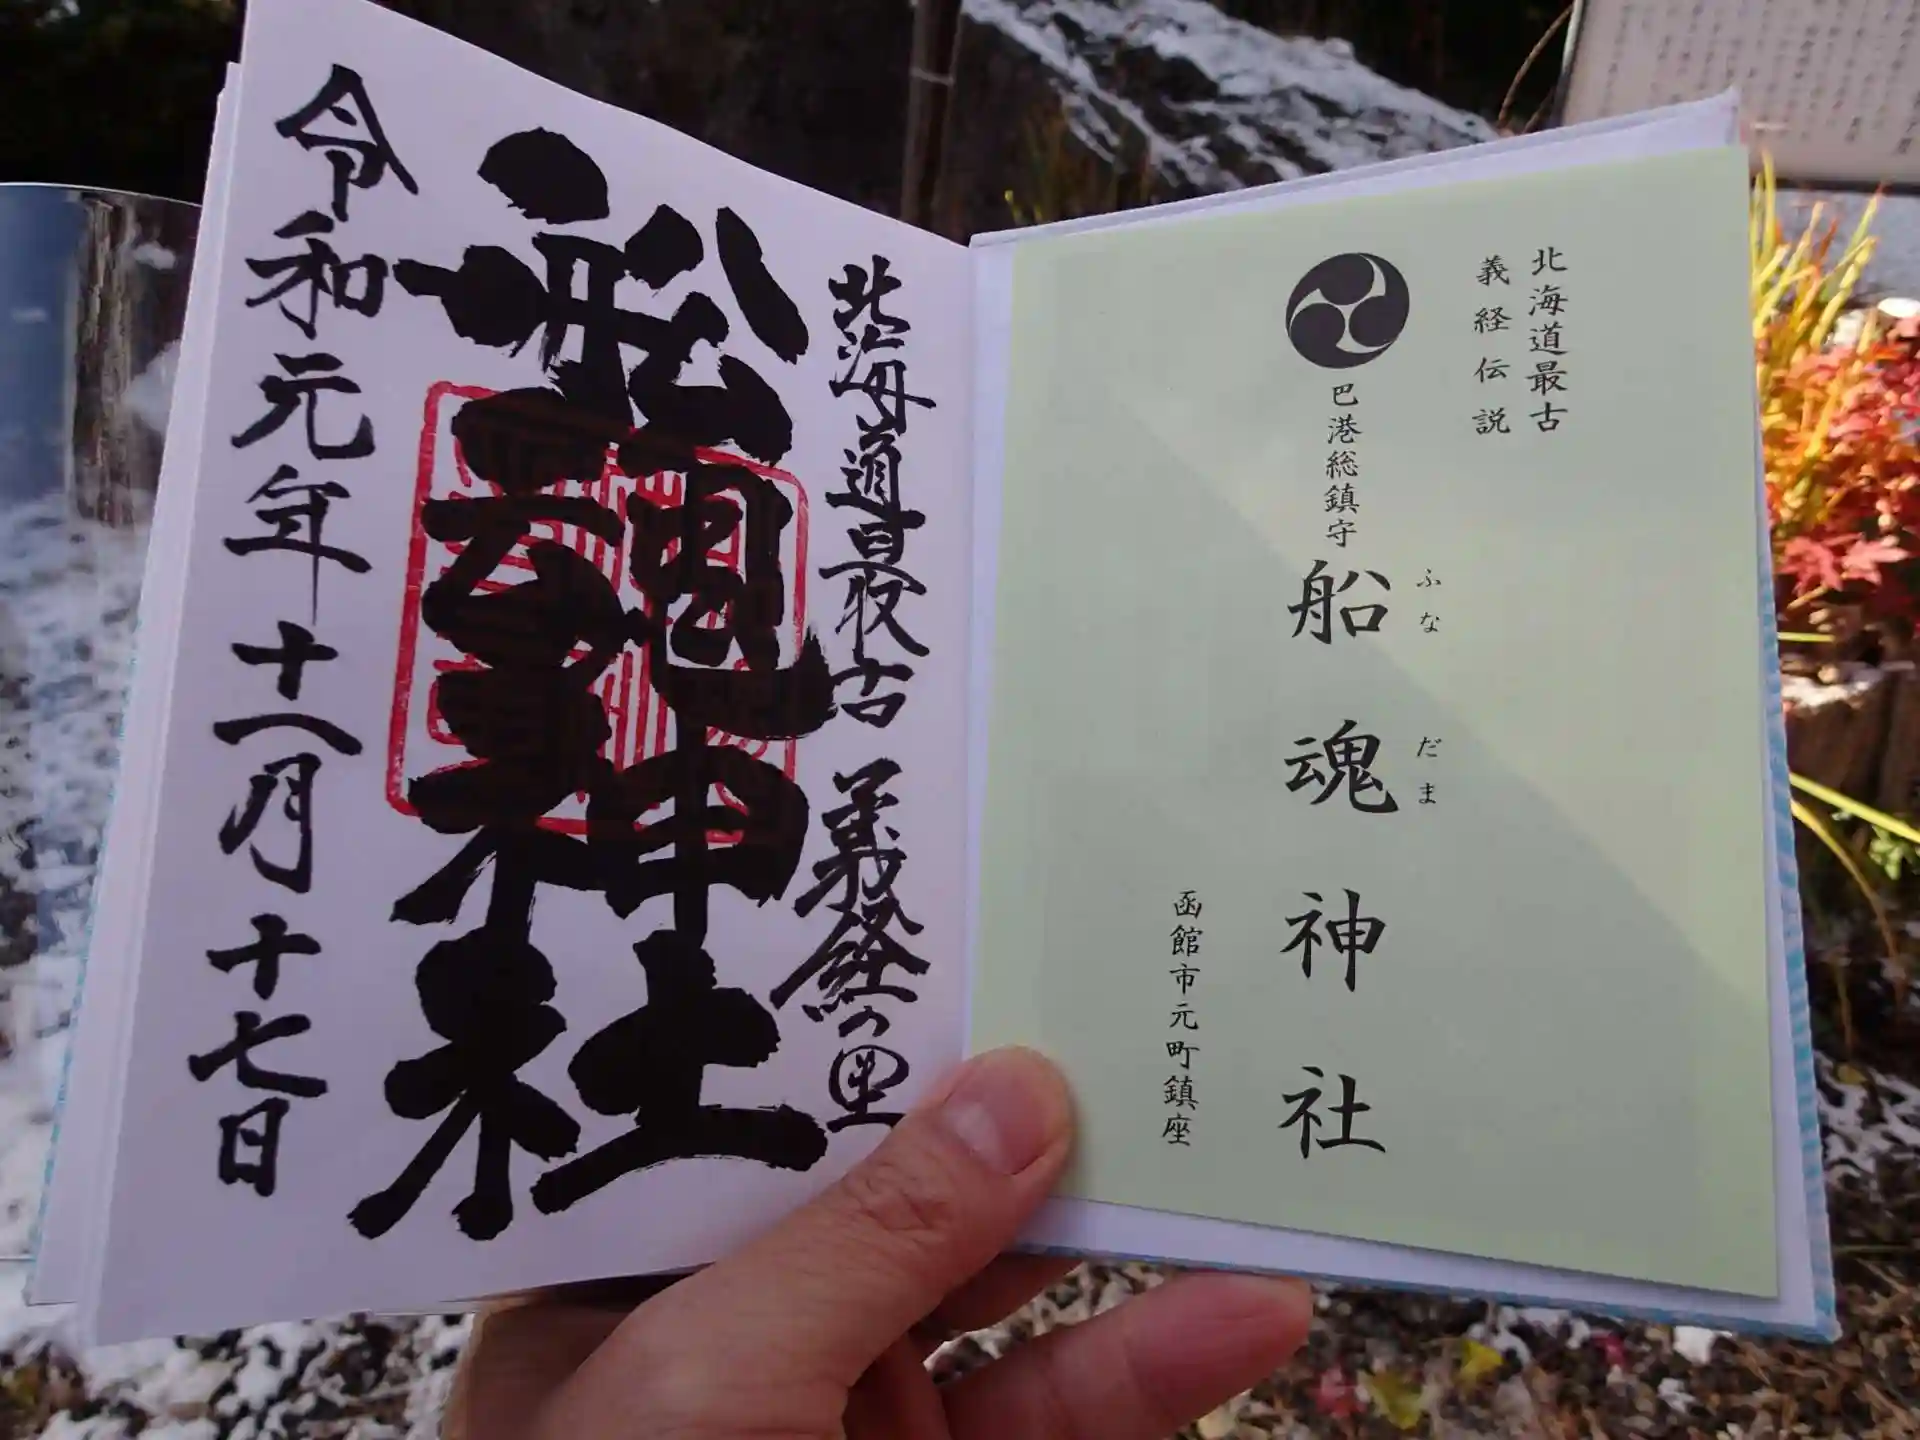 北海道最古
義経伝説
巴港総鎮守
船魂神社
ふなだま
函館市元町鎮座
北海道最古 義経の里
船魂神社
令和元年十一月十七日